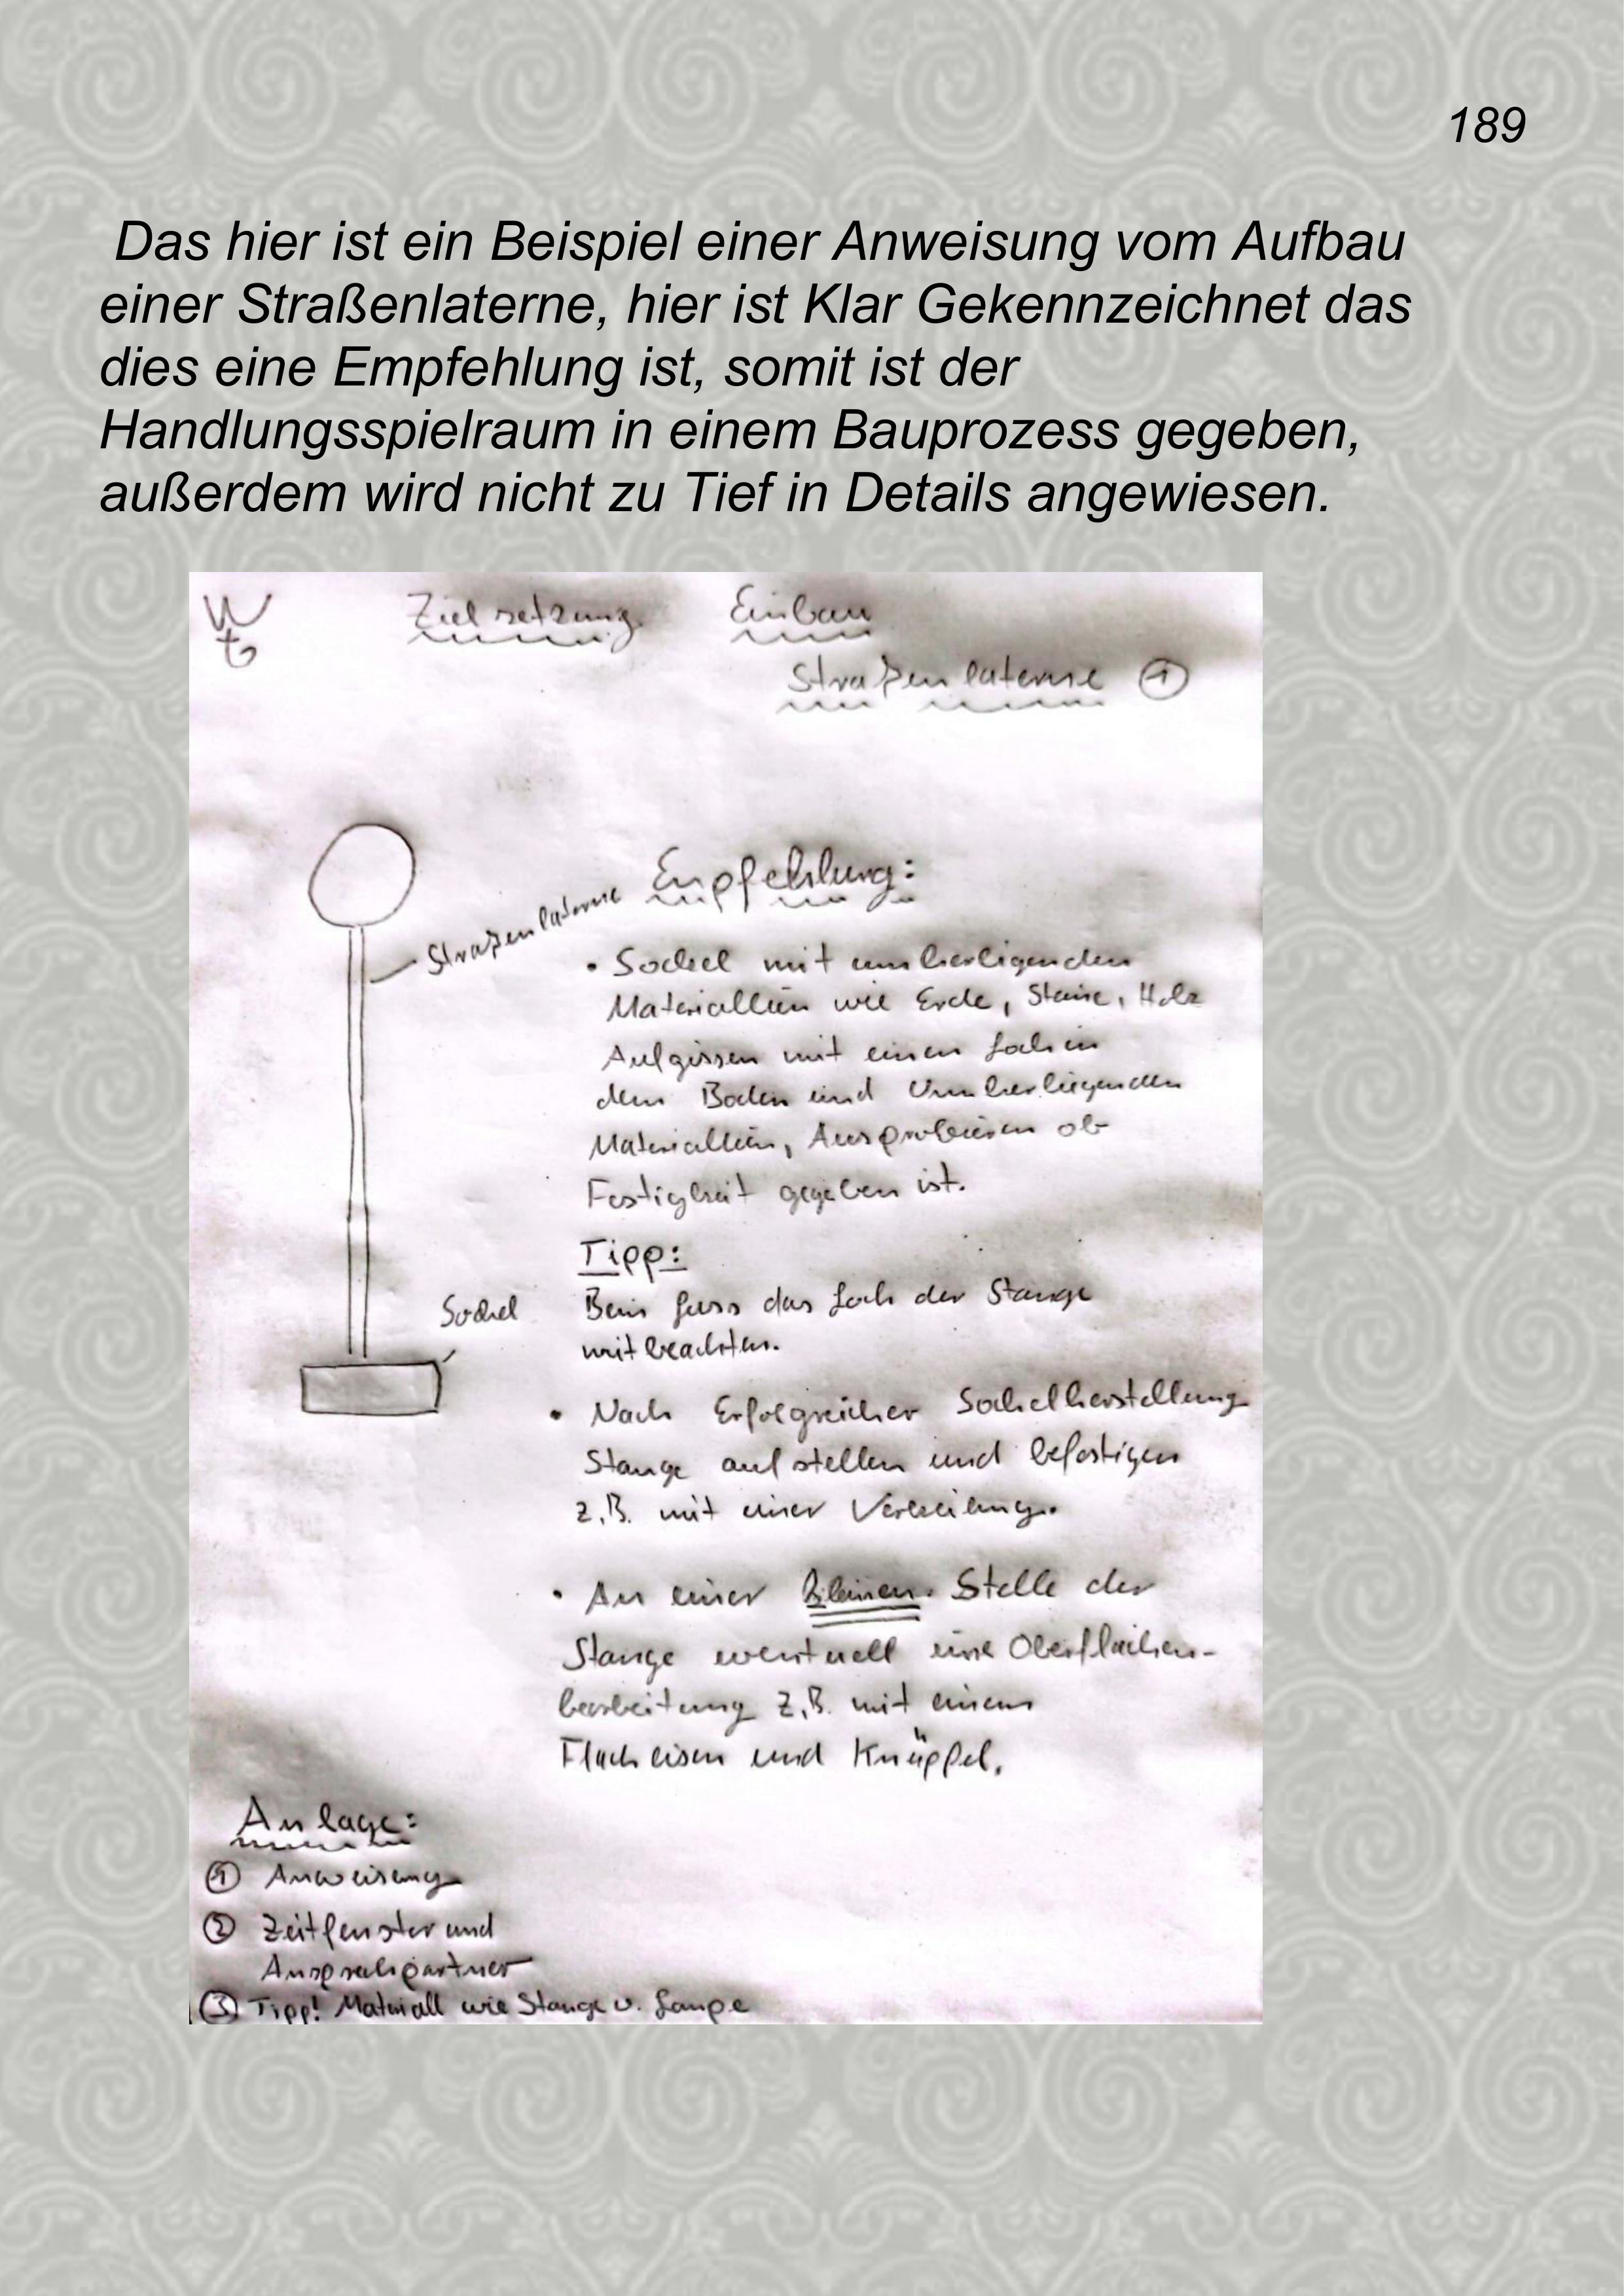 189
Das hier ist ein Beispiel einer Anweisung vom Aufbau
einer Straßenlaterne, hier ist Klar Gekennzeichnet das
dies eine Empfehlung ist, somit ist der
Handlungsspielraum in einem Bauprozess gegeben,
außerdem wird nicht zu Tief in Details angewiesen.
Zielsetzung Einbau
Straßenlaterne ①
Straßenlaterne
Empfehlung:
• Sockel mit umherligenden
Materiallien wie Erde, Steine, Holz
Aufgissen mit einen Loch in
dem Boden und Umherliegenden
Materiallien, Ausprobieren ob
Festigkeit gegeben ist.
Tipp:
Beim Guss das Loch der Stange
mit beachten.
Sockel
• Nach Erfolgreicher Sockelherstellung
Stange aufstellen und befestigen
z.B. mit einer Verkeilung.
• An einer kleinen Stelle der
Stange eventuell eine Oberflächen-
bearbeitung z.B. mit einem
Flacheisen und Knüppel.
Anlage:
① Anweisung
② Zeitfenster und
Ansprechpartner
③ Tipp! Materiall wie Stange u. Lampe